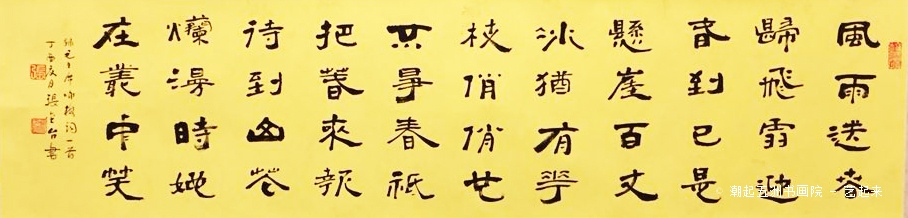 風雨送春
歸飛雪迎
春到已是
懸崖百丈
冰猶有花
枝俏俏也
不爭春祇
把春來報
待到山花
爛漫時她
在叢中笑
錄毛主席咏梅詞一首
丁酉 月張 台書
© 潮起 洲书画院 - 艺起来